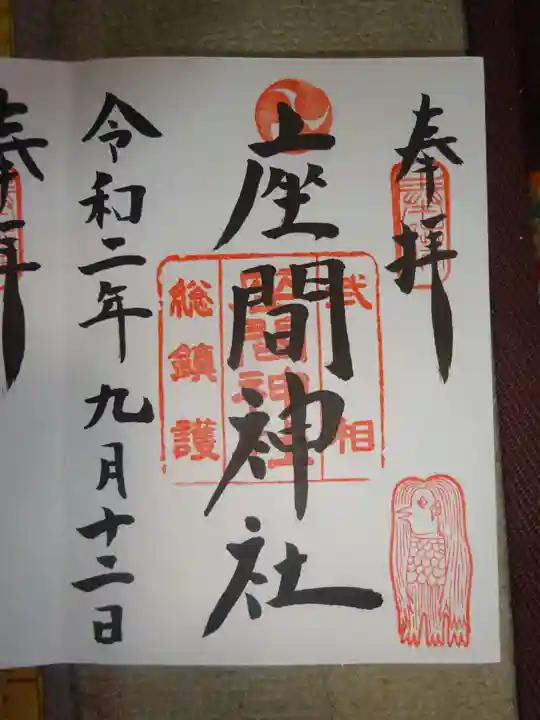 奉拝
座間神社
武相
座間神社
総鎮護
令和二年九月十二日
奉拝